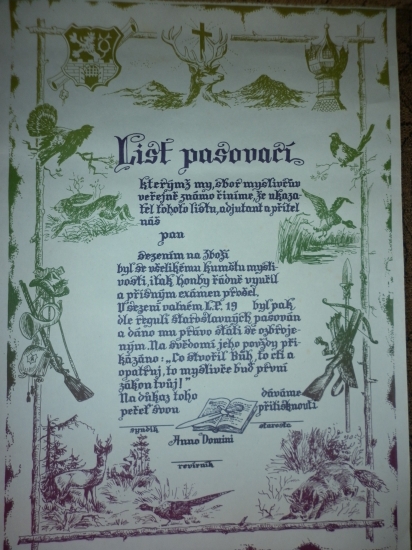 List pasovací
kterýmž my, sbor myslivcův
veřejně známo činíme, že ukaza-
tel tohoto listu, adjutant a přítel
náš
pan
Sezením na Zboží
byl se všelikému kumštu mysli-
vosti, i tak honby řádně vyučil
a přísným exámen prošel.
V sezení valném L.P. 19 byl pak
dle regulí staroslavných pasován
a dáno mu právo státi se ozbroje-
ným. Na svědomí jeho povždy při-
kázáno: „Co stvořil Bůh, to cti a
opatruj, to myslivče buď první
zákon tvůj!"
Na důkaz toho dáváme
pečeť svou přitisknouti
syndik starosta
Anno Domini
revírník